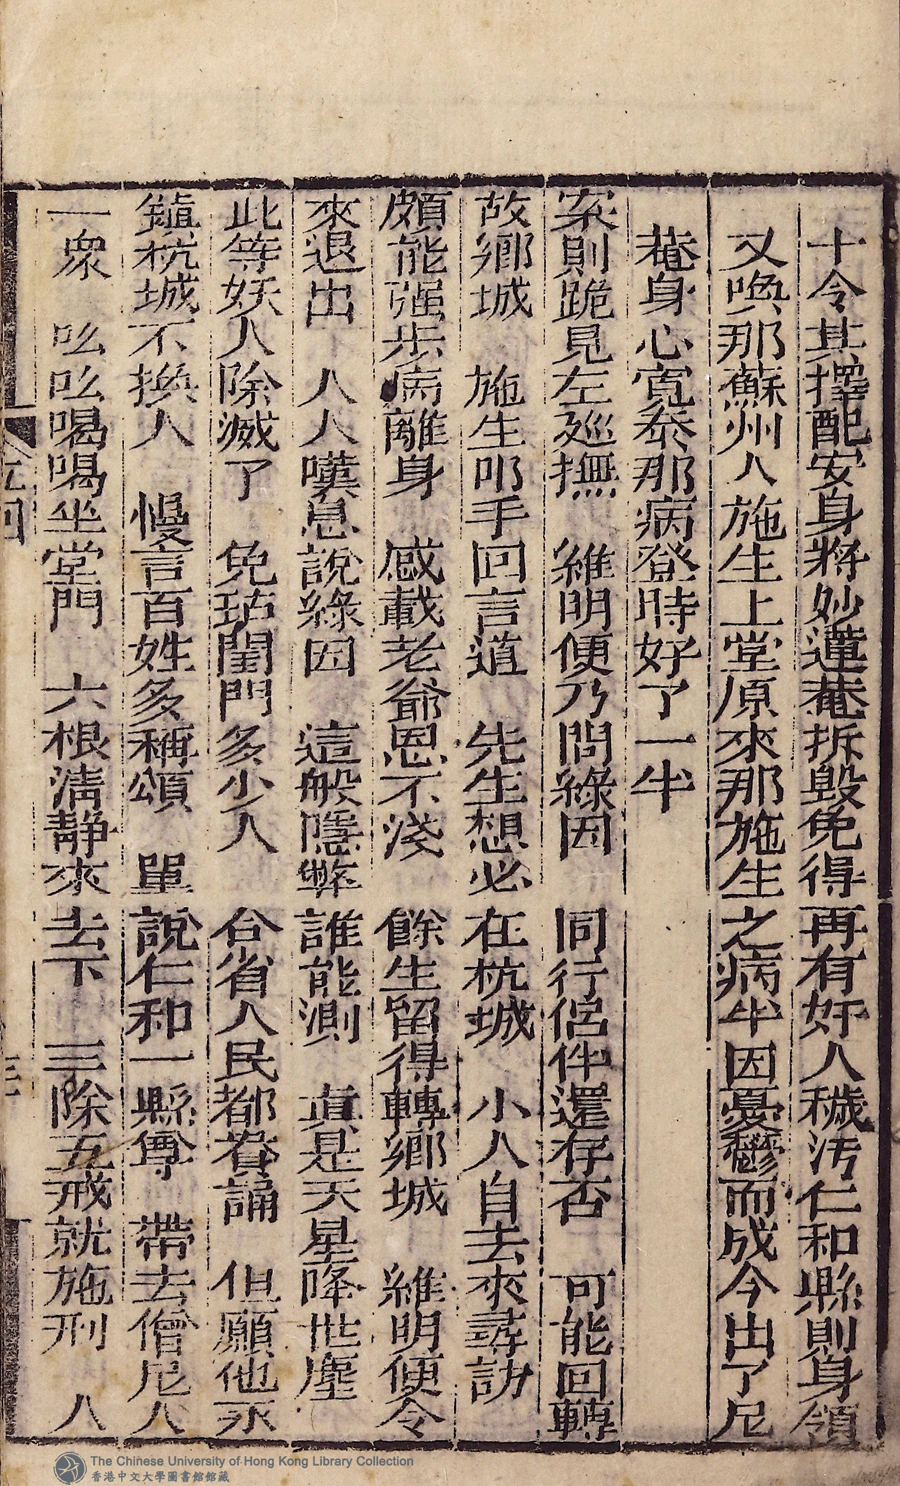 十令其擇配安身將妙蓮菴拆毀免得再有奸人穢汚仁和縣則身領
又喚那蘇州人施生上堂原來那施生之病半因憂鬱而成今出了尼
菴身心寬泰那病登時好了一半
案則跪見左廵撫　維明便乃問緣因　同行侶伴還存否　可能回轉
故鄉城　施生叩手回言道　先生想必在杭城　小人自去來尋訪
頗能强步病離身　感載老爺恩不淺　餘生留得轉鄉城　維明便令
來退出　人人嘆息說緣因　這般隱弊誰能測　眞是天星降世塵
此等妖人除滅了　免玷閨門多少人　合省人民都賛誦　但願他永
鎮杭城不換人　慢言百姓多稱頌　單說仁和一縣尊　帶去僧尼人
一衆　吆吆喝喝坐堂門　六根淸靜來去下　三除五戒就施刑　人
The Chinese University of Hong Kong Library Collection
香港中文大學圖書館館藏